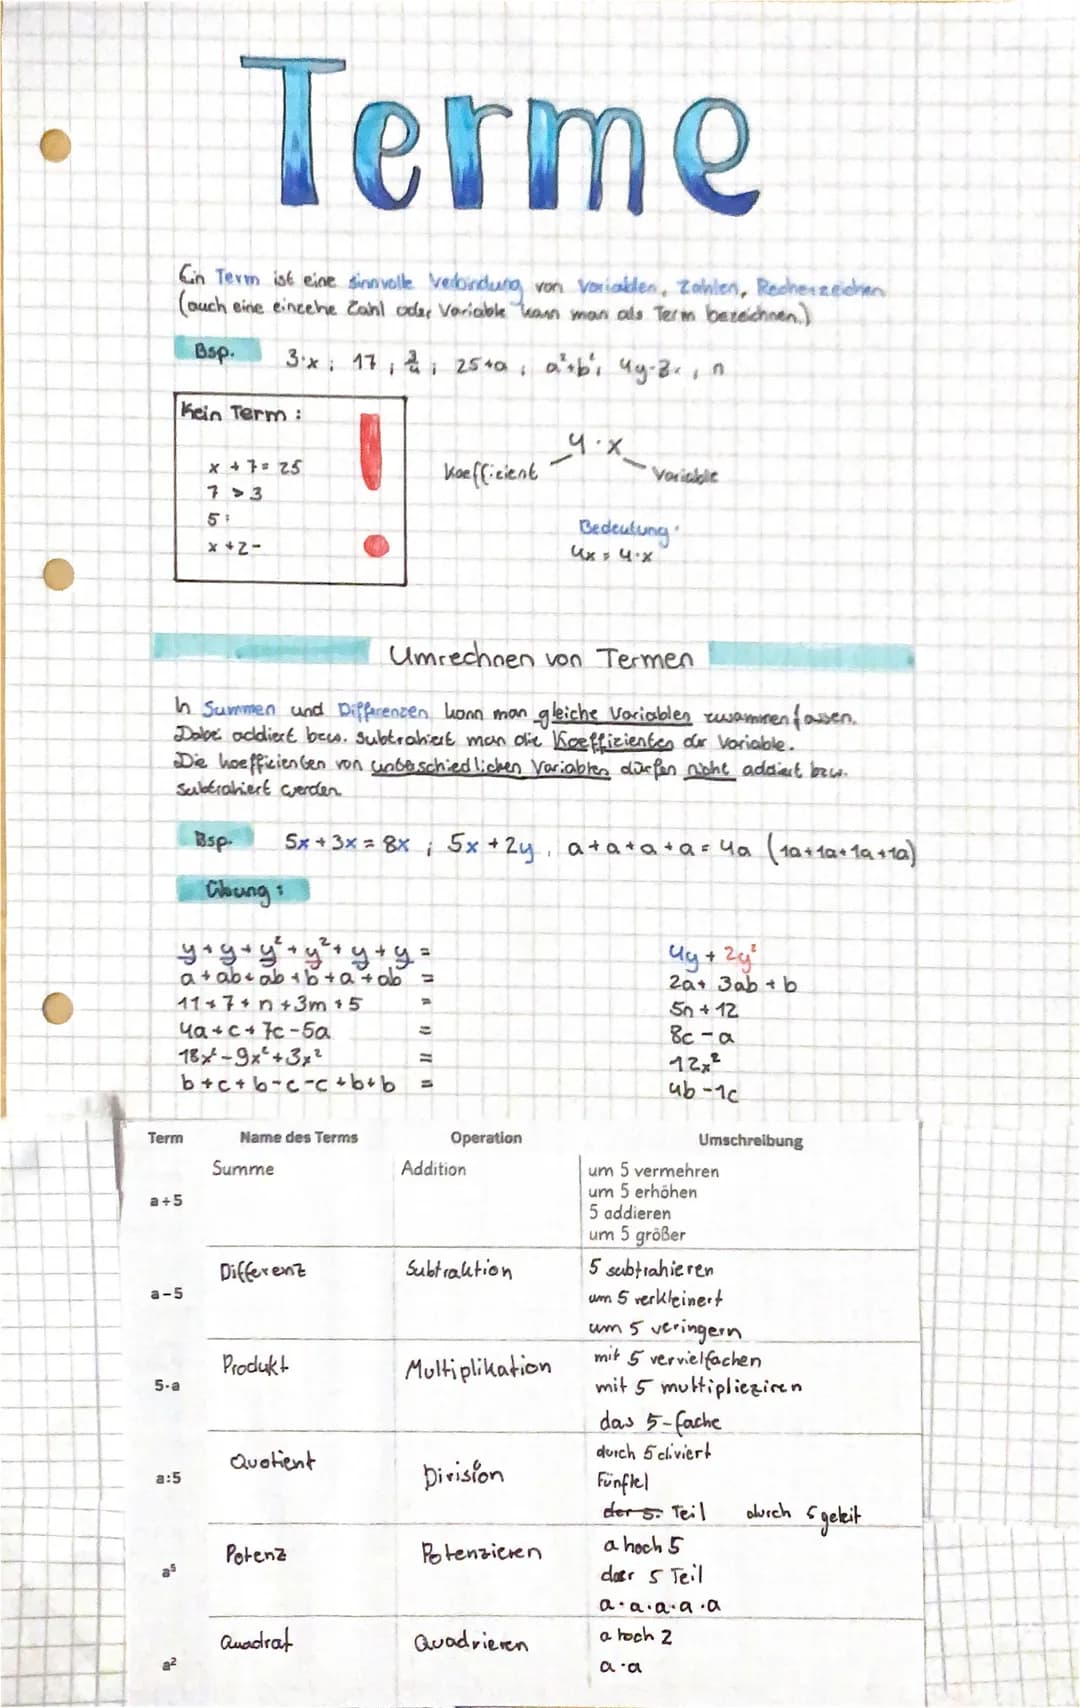 Terme
Ein Term ist eine sinnvolle Verbindung von Variablen, Zahlen, Rechenzeichen
(auch eine einzelne Zahl oder Variable kann man als Term bezeichnen.)
Bsp. 3·x ; 17 ; ; 25+a ; a²+b² ; 4y-3x ; n
Kein Term :
x + 7 = 25
7 > 3
5 :
x + 2 -
4 · x
Koeffizient Variable
Bedeutung:
4x = 4·x
Umrechnen von Termen
In Summen und Differenzen kann man gleiche Variablen zusammenfassen.
Dabei addiert bzw. subtrahiert man die Koeffizienten der Variable.
Die Koefficienten von unterschiedlichen Variablen dürfen nicht addiert bzw.
subtrahiert werden
Bsp. 5x + 3x = 8x ; 5x + 2y , a+a+a+a = 4a (1a+1a+1a+1a)
Übung :
y + y + y² + y² + y + y = 4y + 2y²
a + ab + ab + b + a + ab = 2a + 3ab + b
11 + 7 + n + 3m + 5 = 5n + 12
4a + c + 7c - 5a = 8c - a
18x² - 9x² + 3x² = 12x²
b + c + b - c - c + b + b = 4b - 1c
Term Name des Terms Operation Umschreibung
a+5 Summe Addition um 5 vermehren
um 5 erhöhen
5 addieren
um 5 größer
a-5 Differenz Subtraktion 5 subtrahieren
um 5 verkleinert
um 5 veringern
5·a Produkt Multiplikation mit 5 vervielfachen
mit 5 multiplieziren
das 5-fache
a:5 Quotient Division durch 5 diviert
Fünftel
der 5. Teil durch 5 geteilt
a⁵ Potenz Potenzieren a hoch 5
der 5 Teil
a·a·a·a·a
a² Quadrat Quadrieren a hoch 2
a·a